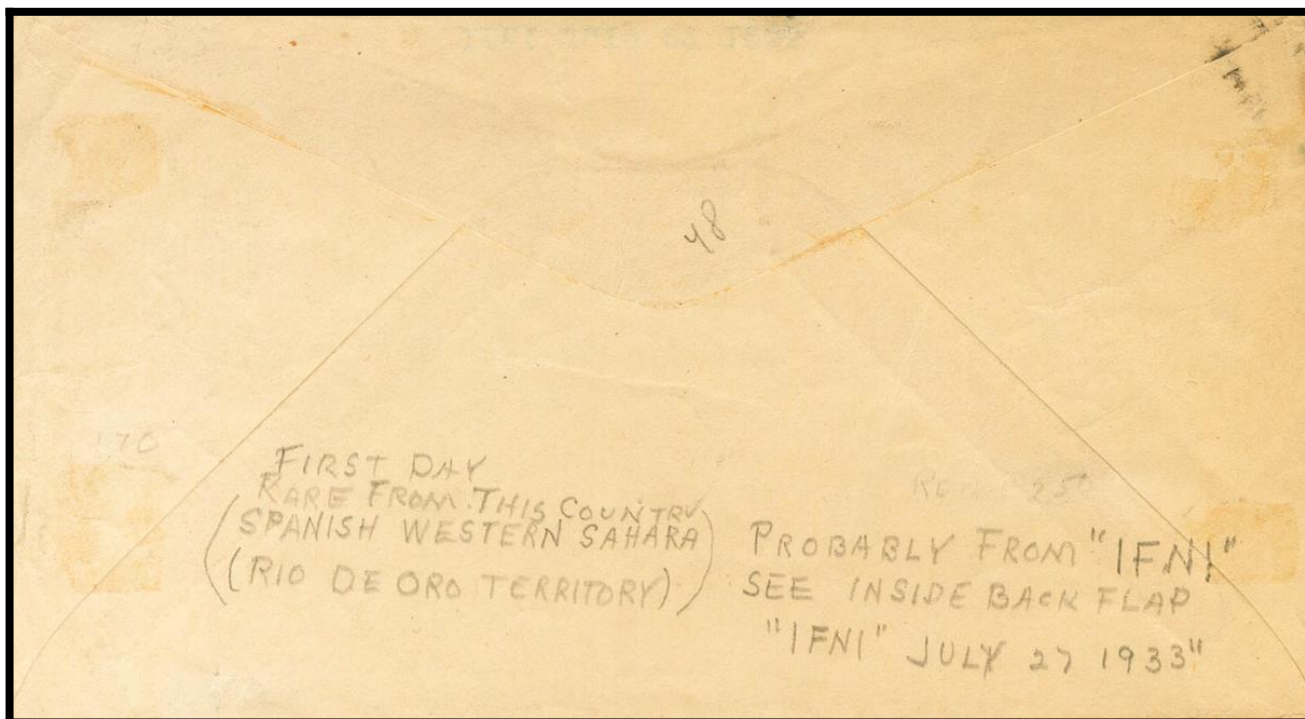 48
170
FIRST DAY
RARE FROM THIS COUNTRY
(SPANISH WESTERN SAHARA
(RIO DE ORO TERRITORY))
PROBABLY FROM "IFNI"
SEE INSIDE BACK FLAP
"IFNI" JULY 27 1933"